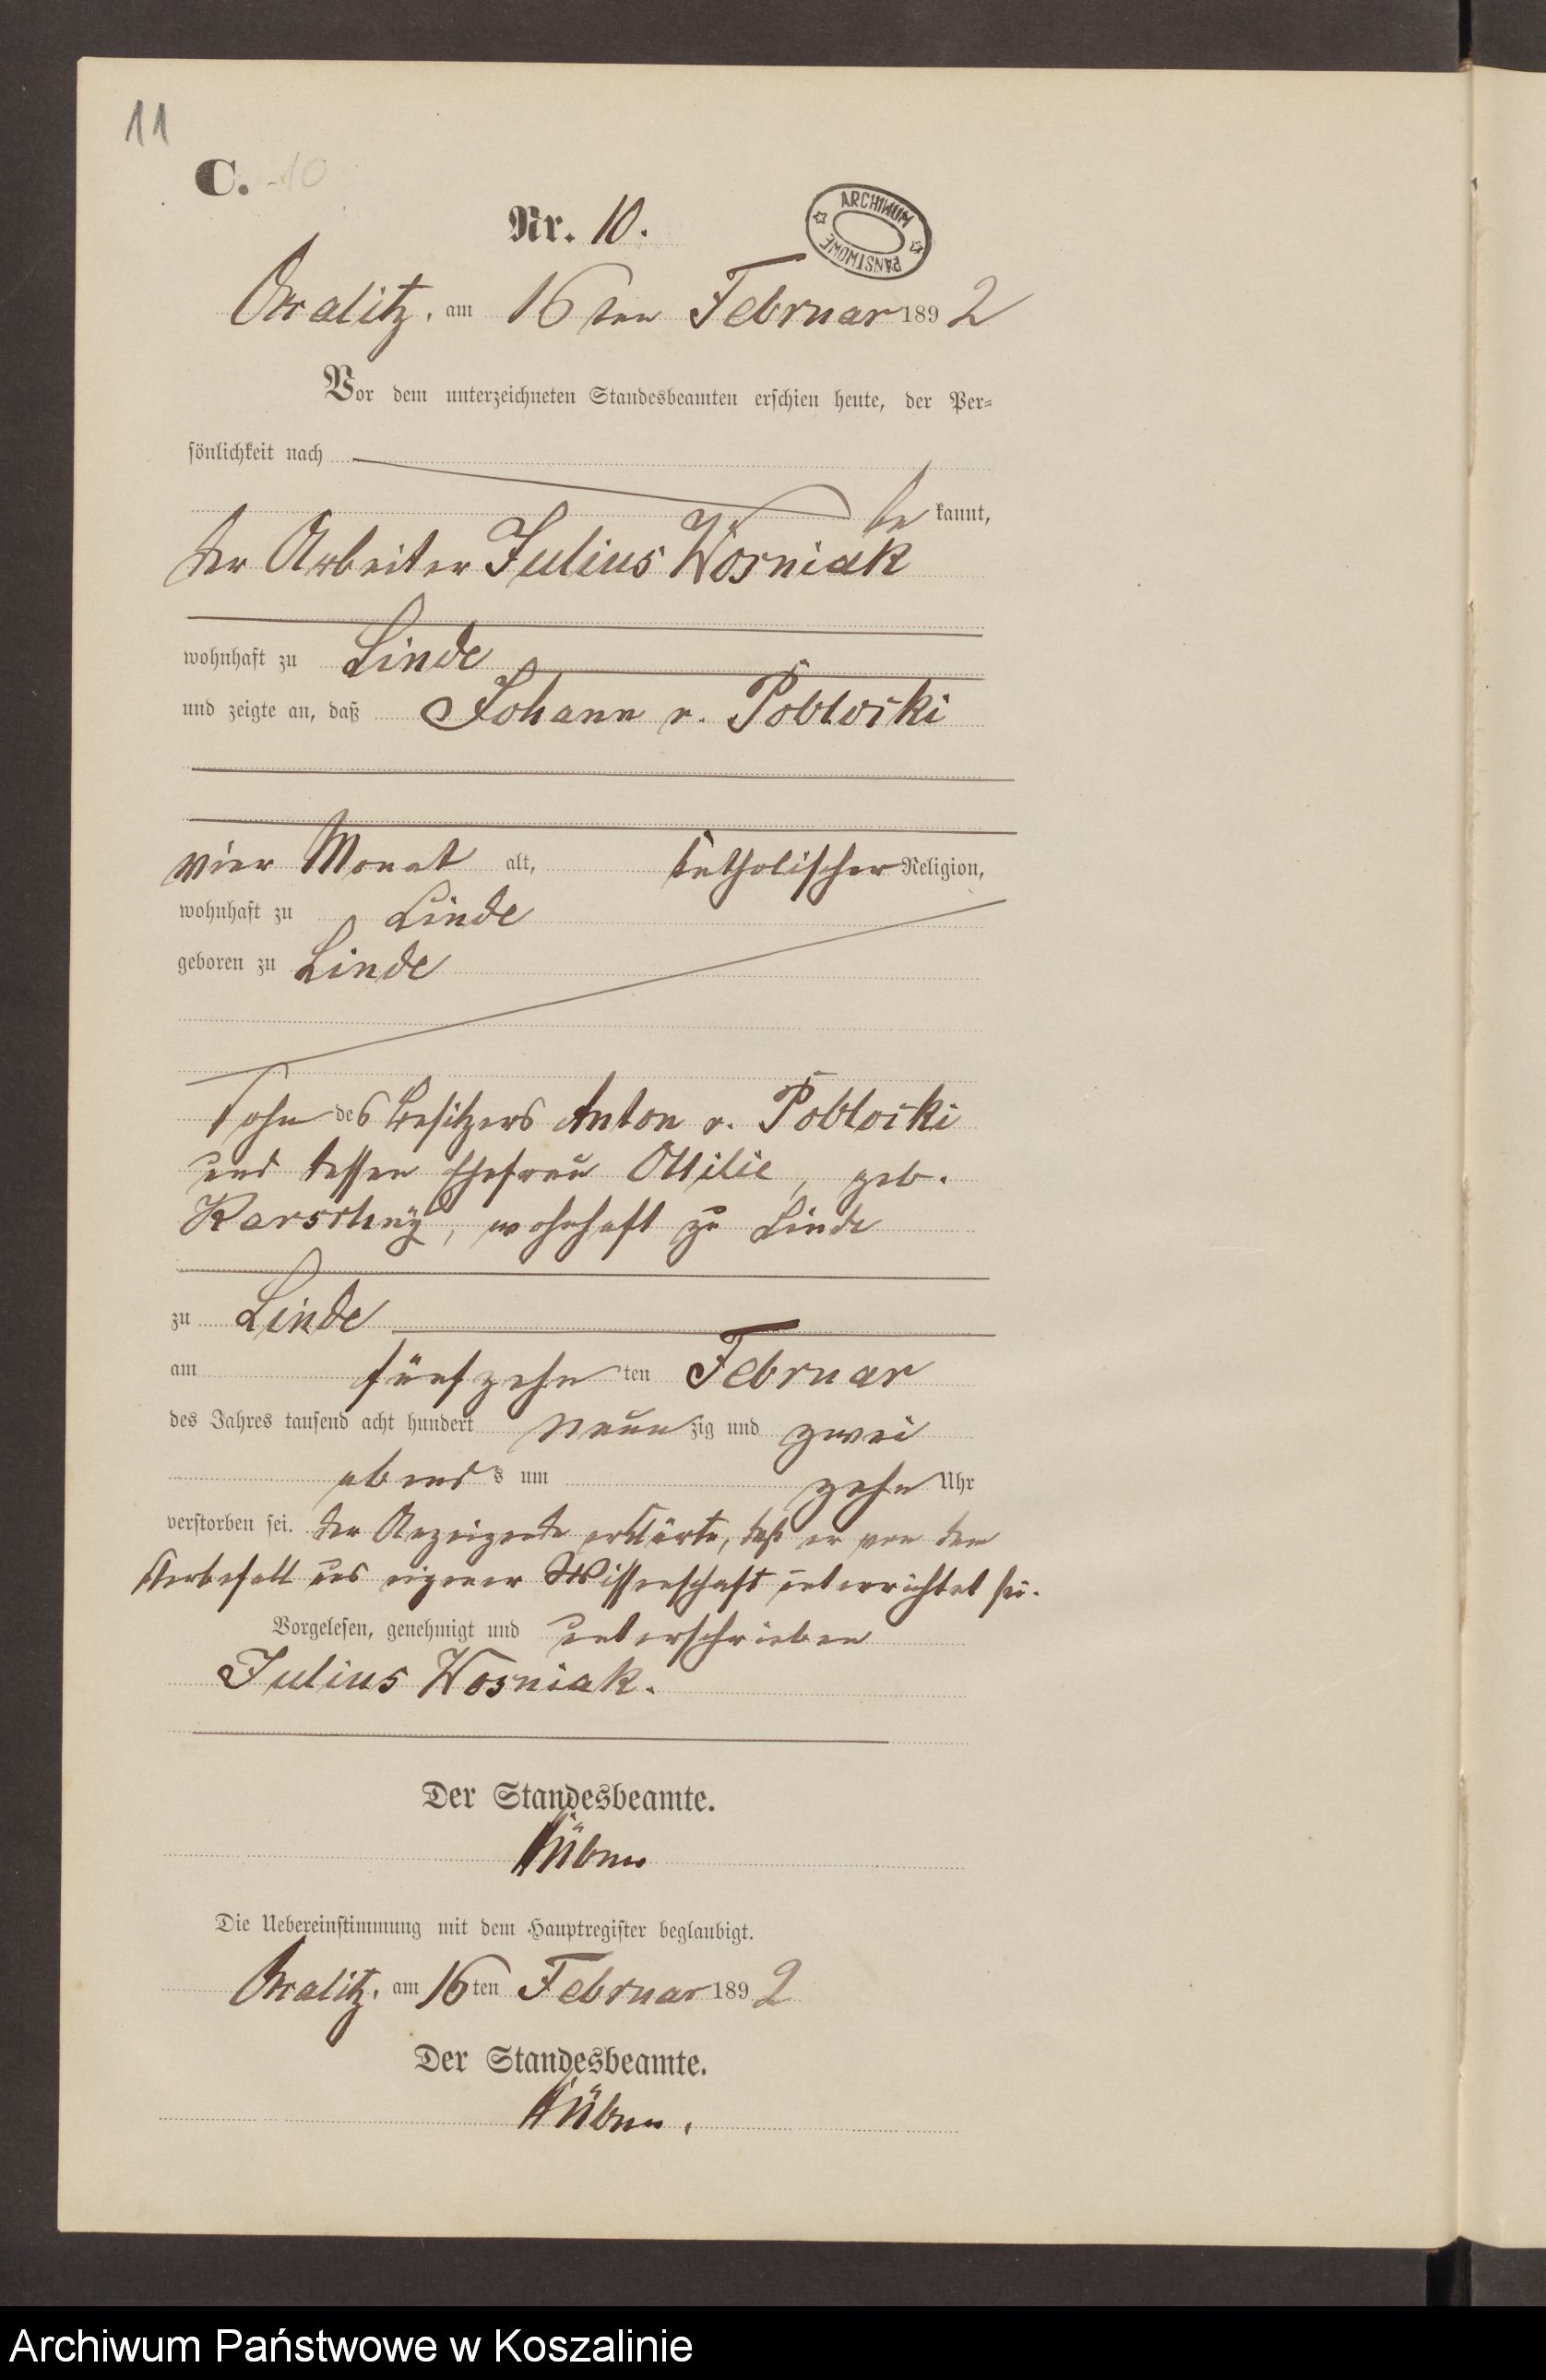 11
C. 10
Nr. 10.
ARCHIWUM PAŃSTWOWE
am 16ten Februar 1892
Vor dem unterzeichneten Standesbeamten erschien heute, der Per=
sönlichkeit nach
be kannt,
der Arbeiter Julius Wosniak
wohnhaft zu Linde
und zeigte an, daß Johann v. Poblocki
vier Monat alt, katholischer Religion,
wohnhaft zu Linde
geboren zu Linde
Sohn des Besitzers Anton v. Poblocki
und dessen Ehefrau Ottilie, geb.
wohnhaft zu Linde
zu Linde
am fünfzehn ten Februar
des Jahres tausend acht hundert neun zig und zwei
abend s um zehn Uhr
verstorben sei. Der Anzeigende erklärte, daß er von dem
Sterbefall aus eigener Wissenschaft unterrichtet sei.
Vorgelesen, genehmigt und unterschrieben
Julius Wosniak.
Der Standesbeamte.
Die Uebereinstimmung mit dem Hauptregister beglaubigt.
am 16ten Februar 1892
Der Standesbeamte.
Archiwum Państwowe w Koszalinie